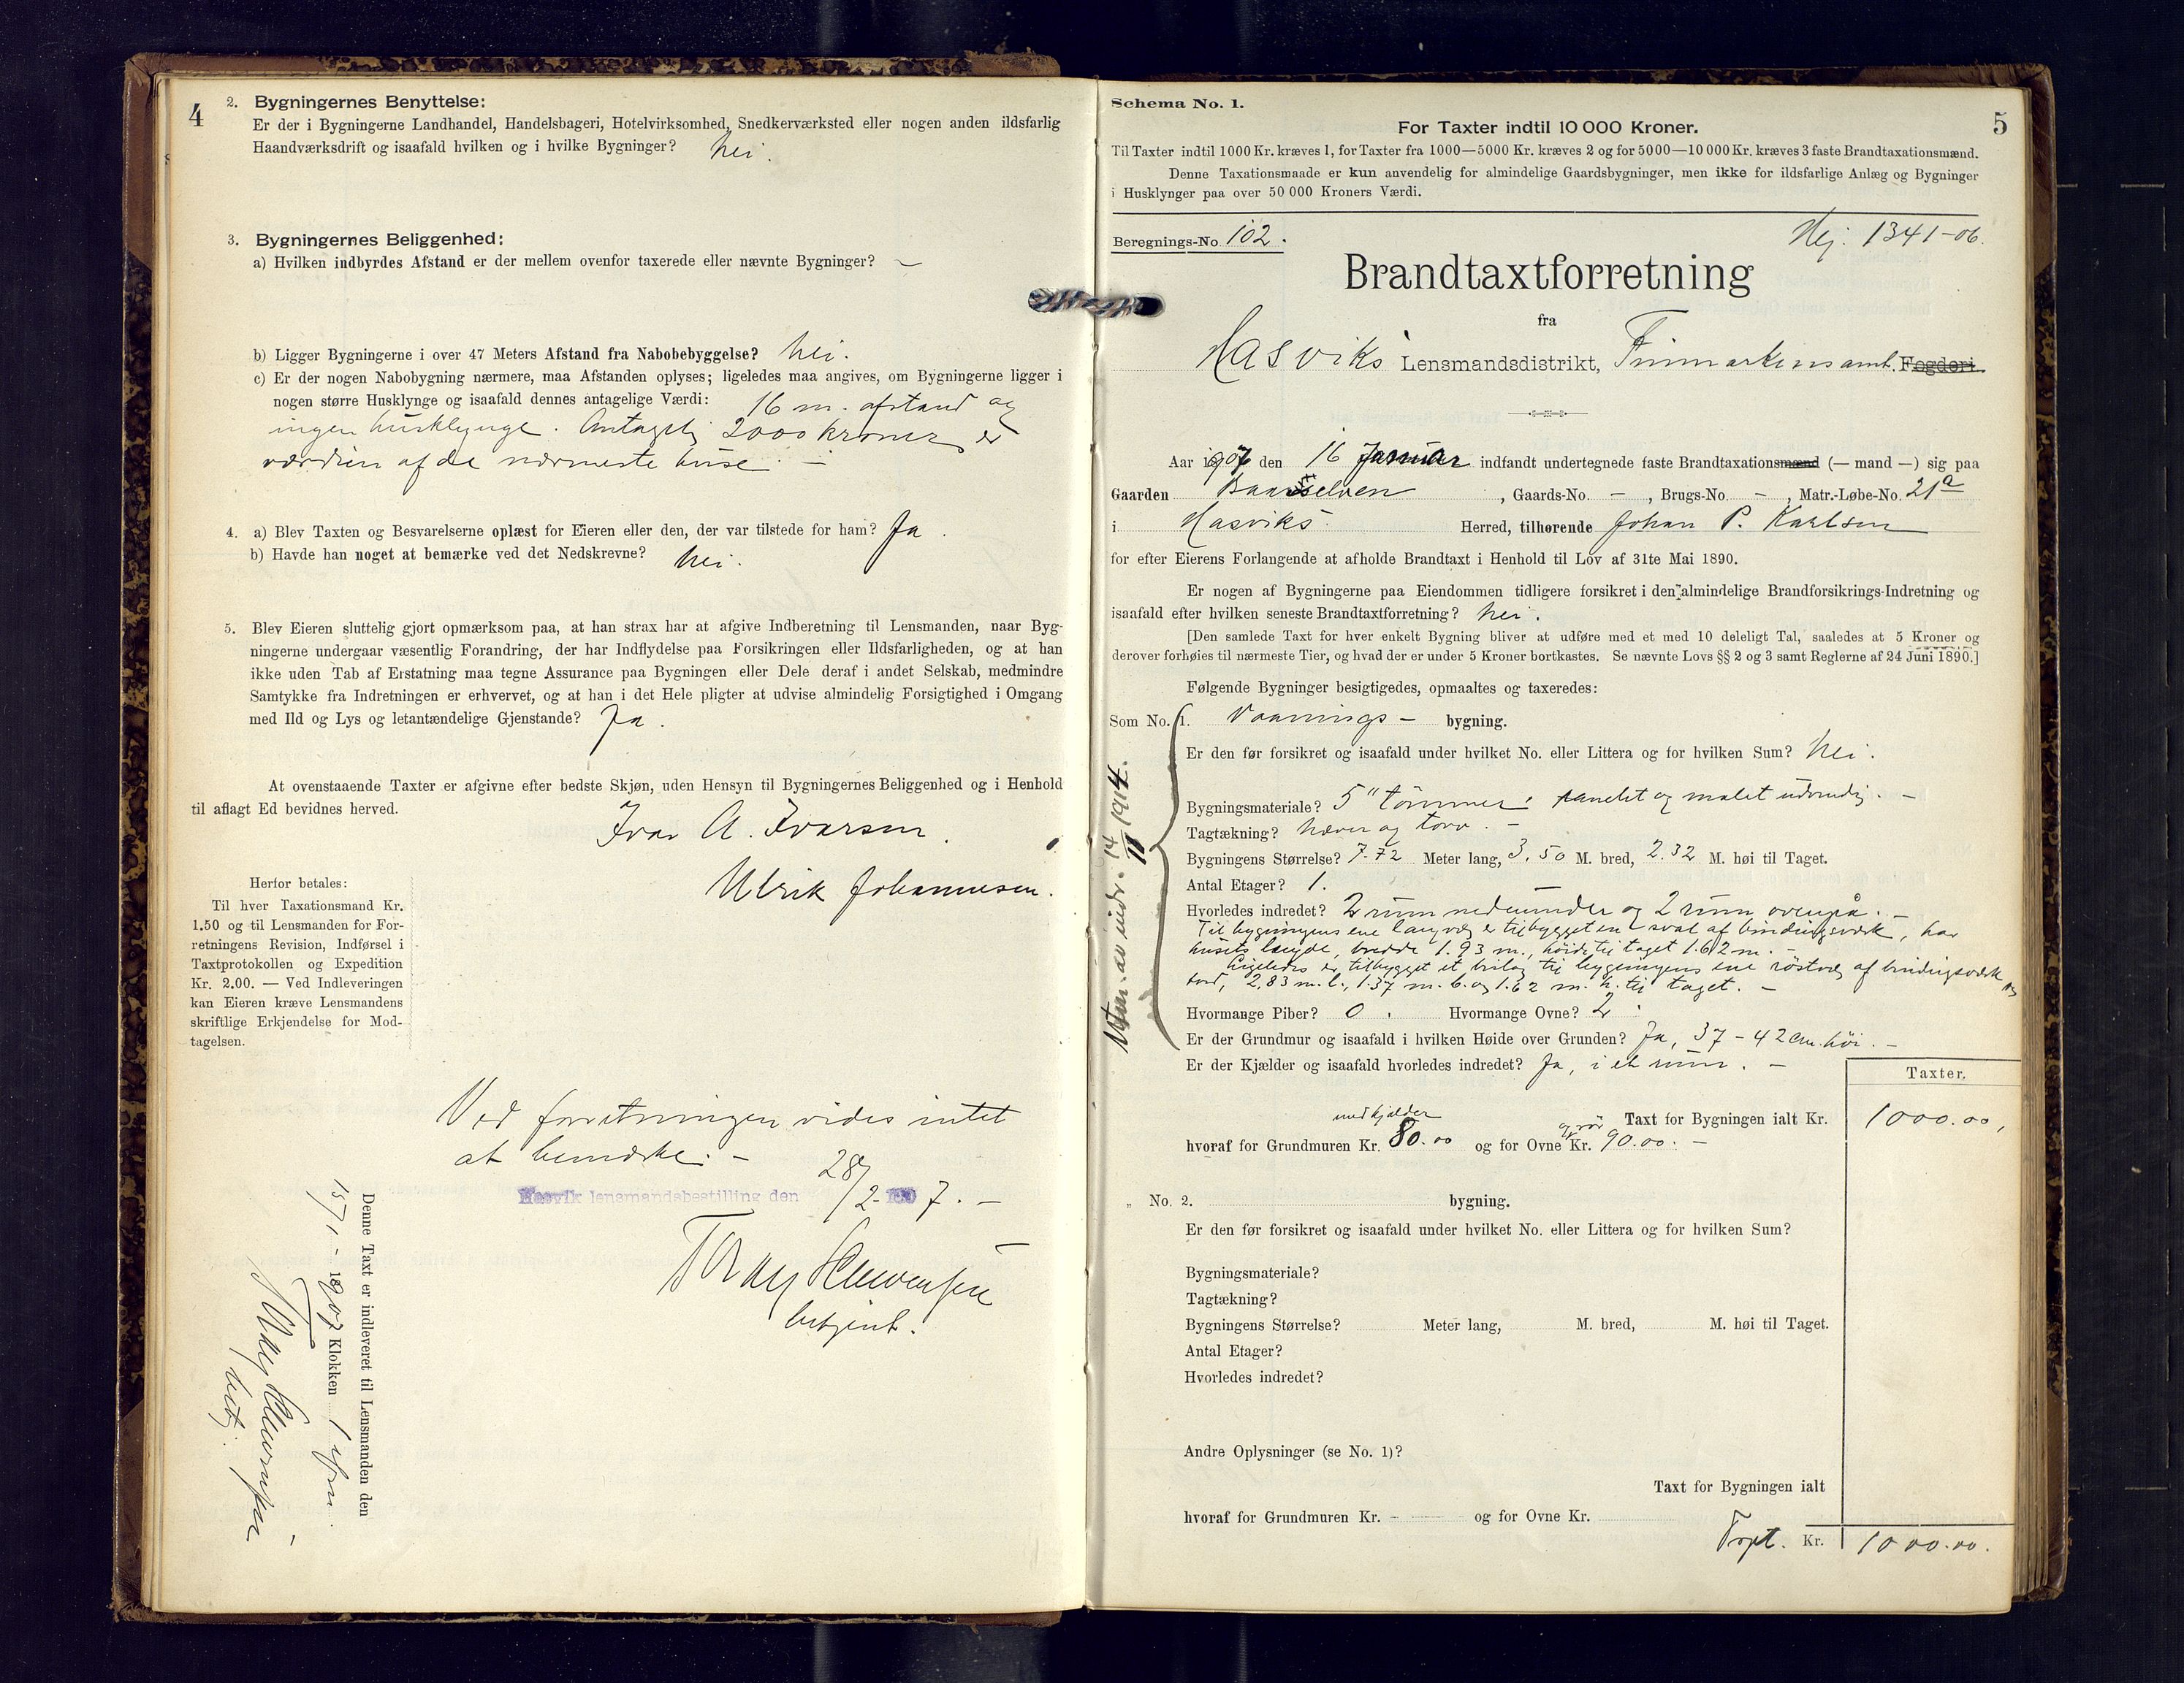 4
2. Bygningernes Benyttelse:
Er der i Bygningerne Landhandel, Handelsbageri, Hotelvirksomhed, Snedkerværksted eller nogen anden ildsfarlig
Haandværksdrift og isaafald hvilken og i hvilke Bygninger? Nei.
3. Bygningernes Beliggenhed:
a) Hvilken indbyrdes Afstand er der mellem ovenfor taxerede eller nævnte Bygninger? ~
b) Ligger Bygningerne i over 47 Meters Afstand fra Nabobebyggelse? Nei.
c) Er der nogen Nabobygning nærmere, maa Afstanden oplyses; ligeledes maa angives, om Bygningerne ligger i
nogen større Husklynge og isaafald dennes antagelige Værdi: 16 m. afstand og
ingen husklynge. Antagelig 2000 kroner er
værdien af de nærmeste huse. —
4. a) Blev Taxten og Besvarelserne oplæst for Eieren eller den, der var tilstede for ham? Ja.
b) Havde han noget at bemærke ved det Nedskrevne? Nei.
5. Blev Eieren sluttelig gjort opmærksom paa, at han strax har at afgive Indberetning til Lensmanden, naar Byg-
ningerne undergaar væsentlig Forandring, der har Indflydelse paa Forsikringen eller Ildsfarligheden, og at han
ikke uden Tab af Erstatning maa tegne Assurance paa Bygningen eller Dele deraf i andet Selskab, medmindre
Samtykke fra Indretningen er erhvervet, og at han i det Hele pligter at udvise almindelig Forsigtighed i Omgang
med Ild og Lys og letantændelige Gjenstande? Ja.
At ovenstaaende Taxter er afgivne efter bedste Skjøn, uden Hensyn til Bygningernes Beliggenhed og i Henhold
til aflagt Ed bevidnes herved.
Ivar A. Ivarsen.
Ulrik Johannesen.
Herfor betales:
Til hver Taxationsmand Kr.
1.50 og til Lensmanden for For-
retningens Revision, Indførsel i
Taxtprotokollen og Expedition
Kr. 2.00. — Ved Indleveringen
kan Eieren kræve Lensmandens
skriftlige Erkjendelse for Mod-
tagelsen.
Ved forretningen vides intet
at bemærke. —
Hasvik lensmandsbestilling den 28/2-1907. —
betjent.
Denne Taxt er indleveret til Lensmanden den
15/1 - 1907 Klokken 1 efm.
betj.
Schema No. 1.
5
For Taxter indtil 10 000 Kroner.
Til Taxter indtil 1000 Kr. kræves 1, for Taxter fra 1000—5000 Kr. kræves 2 og for 5000—10 000 Kr. kræves 3 faste Brandtaxationsmænd.
Denne Taxationsmaade er kun anvendelig for almindelige Gaardsbygninger, men ikke for ildsfarlige Anlæg og Bygninger
i Husklynger paa over 50 000 Kroners Værdi.
Beregnings-No 102.
1341-06.
Brandtaxtforretning
fra
Hasviks Lensmandsdistrikt, Finmarkens amt. Fogderi.
Aar 1907 den 16 Januar indfandt undertegnede faste Brandtaxationsmænd (— mand —) sig paa
Gaarden , Gaards-No. — , Brugs-No. — , Matr.-Løbe-No. 21a
i Hasviks Herred, tilhørende Johan P. Karlsen
for efter Eierens Forlangende at afholde Brandtaxt i Henhold til Lov af 31te Mai 1890.
Er nogen af Bygningerne paa Eiendommen tidligere forsikret i den almindelige Brandforsikrings-Indretning og
isaafald efter hvilken seneste Brandtaxtforretning? Nei.
[Den samlede Taxt for hver enkelt Bygning bliver at udføre med et med 10 deleligt Tal, saaledes at 5 Kroner og
derover forhøies til nærmeste Tier, og hvad der er under 5 Kroner bortkastes. Se nævnte Lovs §§ 2 og 3 samt Reglerne af 24 Juni 1890.]
Følgende Bygninger besigtigedes, opmaaltes og taxeredes:
Som No. 1. Vaanings — bygning.
Er den før forsikret og isaafald under hvilket No. eller Littera og for hvilken Sum? Nei.
Bygningsmateriale? 5" tømmer, panelet og malet udvendig. —
Tagtækning? Næver og torv. —
Bygningens Størrelse? 7.72 Meter lang, 3.50 M. bred, 2.32 M. høi til Taget.
Antal Etager? 1.
Hvorledes indredet? 2 rum nedenunder og 2 rum ovenpå. —
Til bygningens ene langvæg er tilbygget en sval af bindingsværk, har
husets længde, bredde 1.93 m., høide til taget 1.62 m. —
Ligeledes er tilbygget et bislag til bygningens ene röstvæg af bindingsværk og
bord, 2.83 m. l., 1.37 m. b. og 1.62 m. h. til taget. —
Hvormange Piber? 0. Hvormange Ovne? 2.
Er der Grundmur og isaafald i hvilken Høide over Grunden? Ja, 37 - 42 cm. höi. —
Er der Kjælder og isaafald hvorledes indredet? Ja, i et rum. —
Taxter.
Taxt for Bygningen ialt Kr. 1000.00,
med kjælder
og rör
hvoraf for Grundmuren Kr. 80.00 og for Ovne Kr. 90.00. —
14/11 1914.
„ No. 2. bygning.
Er den før forsikret og isaafald under hvilket No. eller Littera og for hvilken Sum?
Bygningsmateriale?
Tagtækning?
Bygningens Størrelse? Meter lang, M. bred, M. høi til Taget.
Antal Etager?
Hvorledes indredet?
Andre Oplysninger (se No. 1)?
Taxt for Bygningen ialt
hvoraf for Grundmuren Kr. og for Ovne Kr.
Trpt. Kr. 1000.00.